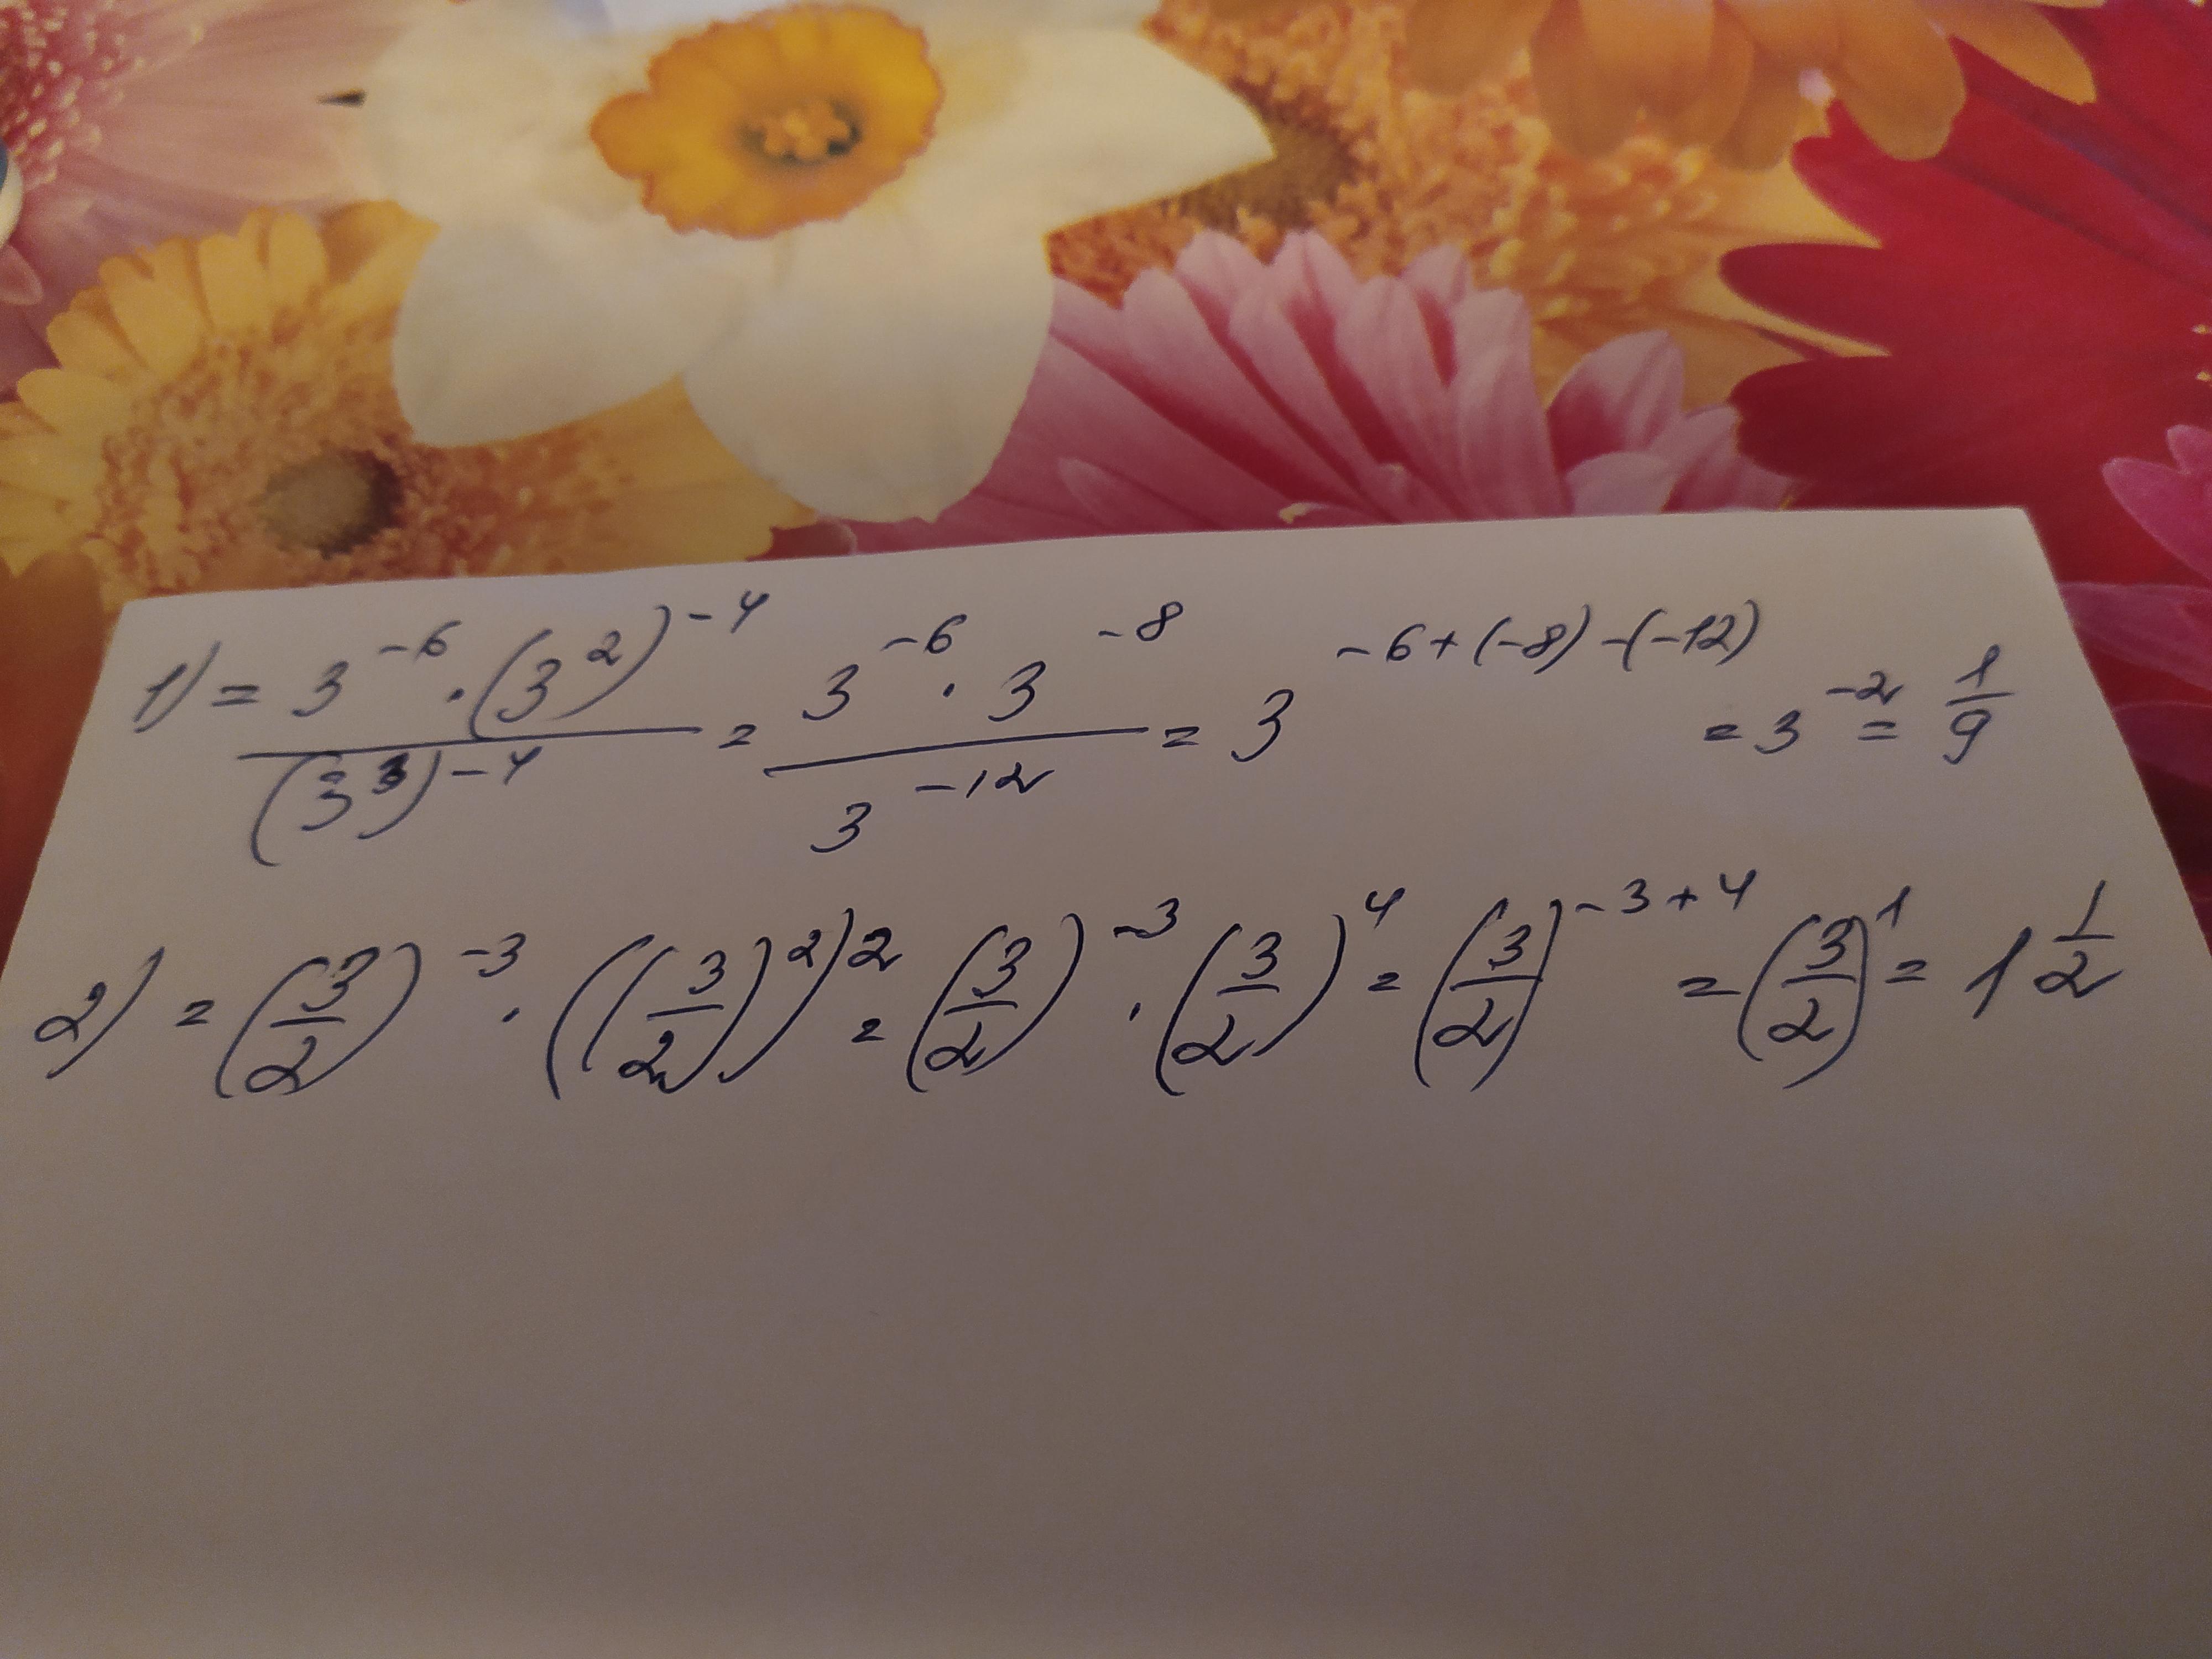 1) = \frac{3^{-6} \cdot (3^2)^{-4}}{(3^3)^{-4}} = \frac{3^{-6} \cdot 3^{-8}}{3^{-12}} = 3^{-6+(-8)-(-12)} = 3^{-2} = \frac{1}{9}
2) = (\frac{3}{2})^{-3} \cdot ((\frac{3}{2})^2)^2 = (\frac{3}{2})^{-3} \cdot (\frac{3}{2})^4 = (\frac{3}{2})^{-3+4} = (\frac{3}{2})^1 = 1\frac{1}{2}